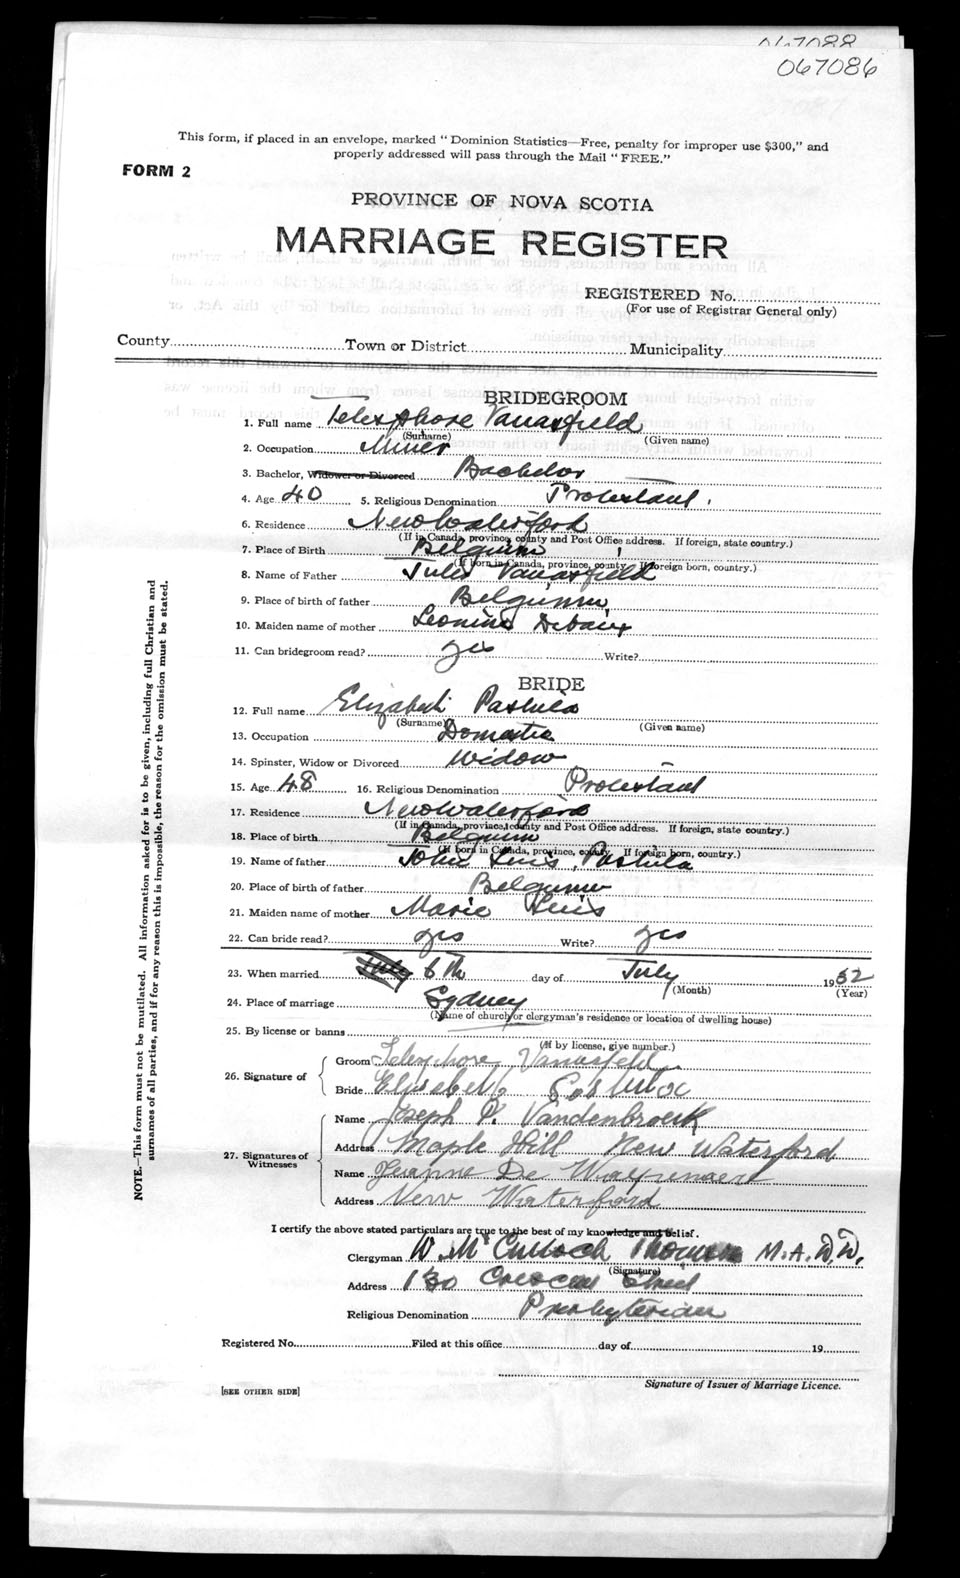 067088
067086
This form, if placed in an envelope, marked "Dominion Statistics—Free, penalty for improper use $300," and
properly addressed will pass through the Mail "FREE."
FORM 2
PROVINCE OF NOVA SCOTIA
MARRIAGE REGISTER
REGISTERED No.
(For use of Registrar General only)
County Town or District Municipality
BRIDEGROOM
1. Full name Telesphore Vanarfield
(Surname) (Given name)
2. Occupation Miner
3. Bachelor, Widower or Divorced Bachelor
4. Age 40 5. Religious Denomination Protestant
6. Residence New Waterford
(If in Canada, province, county and Post Office address. If foreign, state country.)
7. Place of Birth Belgium
(If born in Canada, province, county. If foreign born, country.)
8. Name of Father Jules Vanarfield
9. Place of birth of father Belgium
10. Maiden name of mother
11. Can bridegroom read? yes Write?
BRIDE
12. Full name Elizabeth Pastula
(Surname) (Given name)
13. Occupation Domestic
14. Spinster, Widow or Divorced Widow
15. Age 48 16. Religious Denomination Protestant
17. Residence New Waterford
(If in Canada, province, county and Post Office address. If foreign, state country.)
18. Place of birth Belgium
(If born in Canada, province, county. If foreign born, country.)
19. Name of father John Luis Pastula
20. Place of birth of father Belgium
21. Maiden name of mother Marie Luis
22. Can bride read? yes Write? yes
23. When married 6th day of July 1932
(Month) (Year)
24. Place of marriage Sydney
(Name of church or clergyman's residence or location of dwelling house)
25. By license or banns
(If by license, give number.)
26. Signature of
Groom Telesphore
Bride
27. Signatures of Witnesses
Name Joseph P. Vandenbroeck
Address Maple Hill New Waterford
Name Jeanne De
Address New Waterford
I certify the above stated particulars are true to the best of my knowledge and belief.
Clergyman W. McCulloch Thomson M.A. D.D.
(Signature)
Address 130 Crescent Street
Religious Denomination Presbyterian
Registered No. Filed at this office day of 19
Signature of Issuer of Marriage Licence.
[SEE OTHER SIDE]
NOTE.—This form must not be mutilated. All information asked for is to be given, including full Christian and
surnames of all parties, and if for any reason this is impossible, the reason for the omission must be stated.